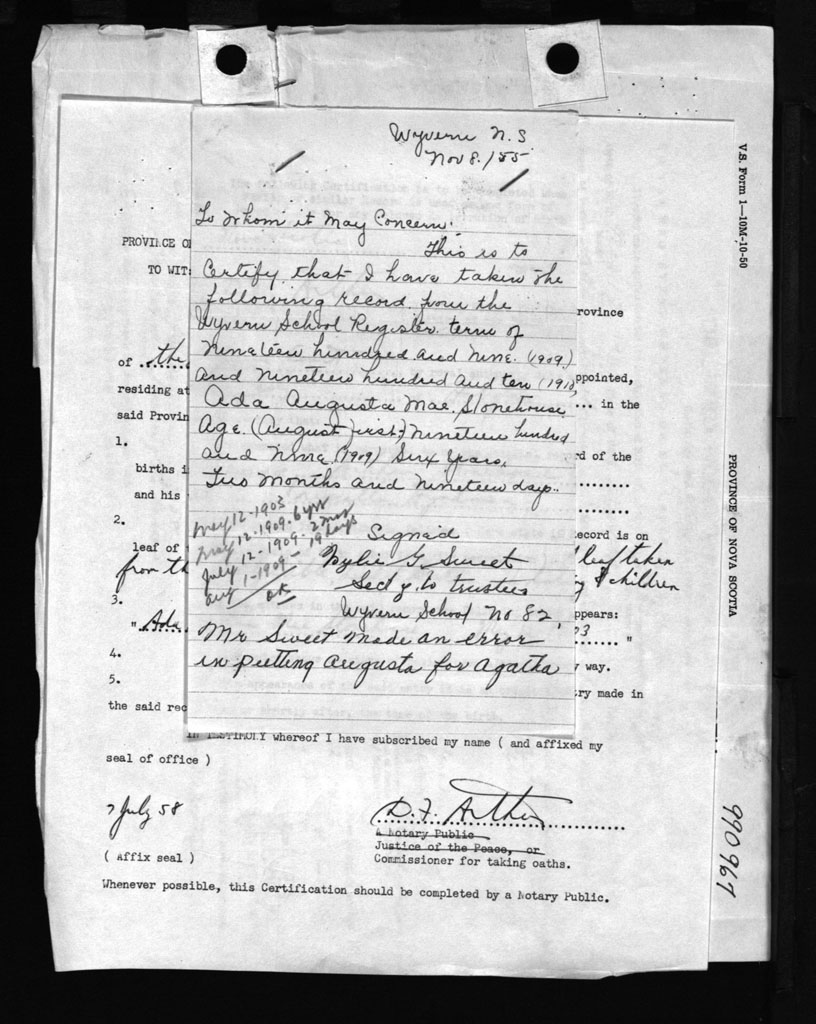 Wyvern N.S
Nov 8./55
To Whom it May Concern:
This is to
Certify that I have taken the
following record from the
Wyvern School Register term of
Nineteen hundred and Nine. (1909)
and Nineteen hundred and ten (1910)
Ada Augusta Mae. Stonehouse
Age. (August first) Nineteen hundred
and Nine (1909) Six Years,
Two Months and Nineteen days..
May 12-1903
May 12-1909-6 yrs
July 12-1909-2 mos
Aug 1-1909-19 days
OK
Signed
Wylie G. Sweet
Secty. to trustees
Wyvern School No 82,
Mr Sweet made an error
in putting Augusta for Agatha
PROVINCE O
TO WIT:
rovince
of the
ppointed,
residing at
... in the
said Provin
1.
rd of the
births i
and his
2.
ecord is on
leaf of
leaf taken
from th
& children
3.
ppears:
" Ada
03 "
4.
way.
5.
ry made in
the said rec
IN TESTIMONY whereof I have subscribed my name ( and affixed my
seal of office )
7 July 58
D.F. Arthur
A Notary Public
Justice of the Peace, or
( Affix seal )
Commissioner for taking oaths.
Whenever possible, this Certification should be completed by a Notary Public.
V.S. Form 1—10M-10-50
PROVINCE OF NOVA SCOTIA
990967